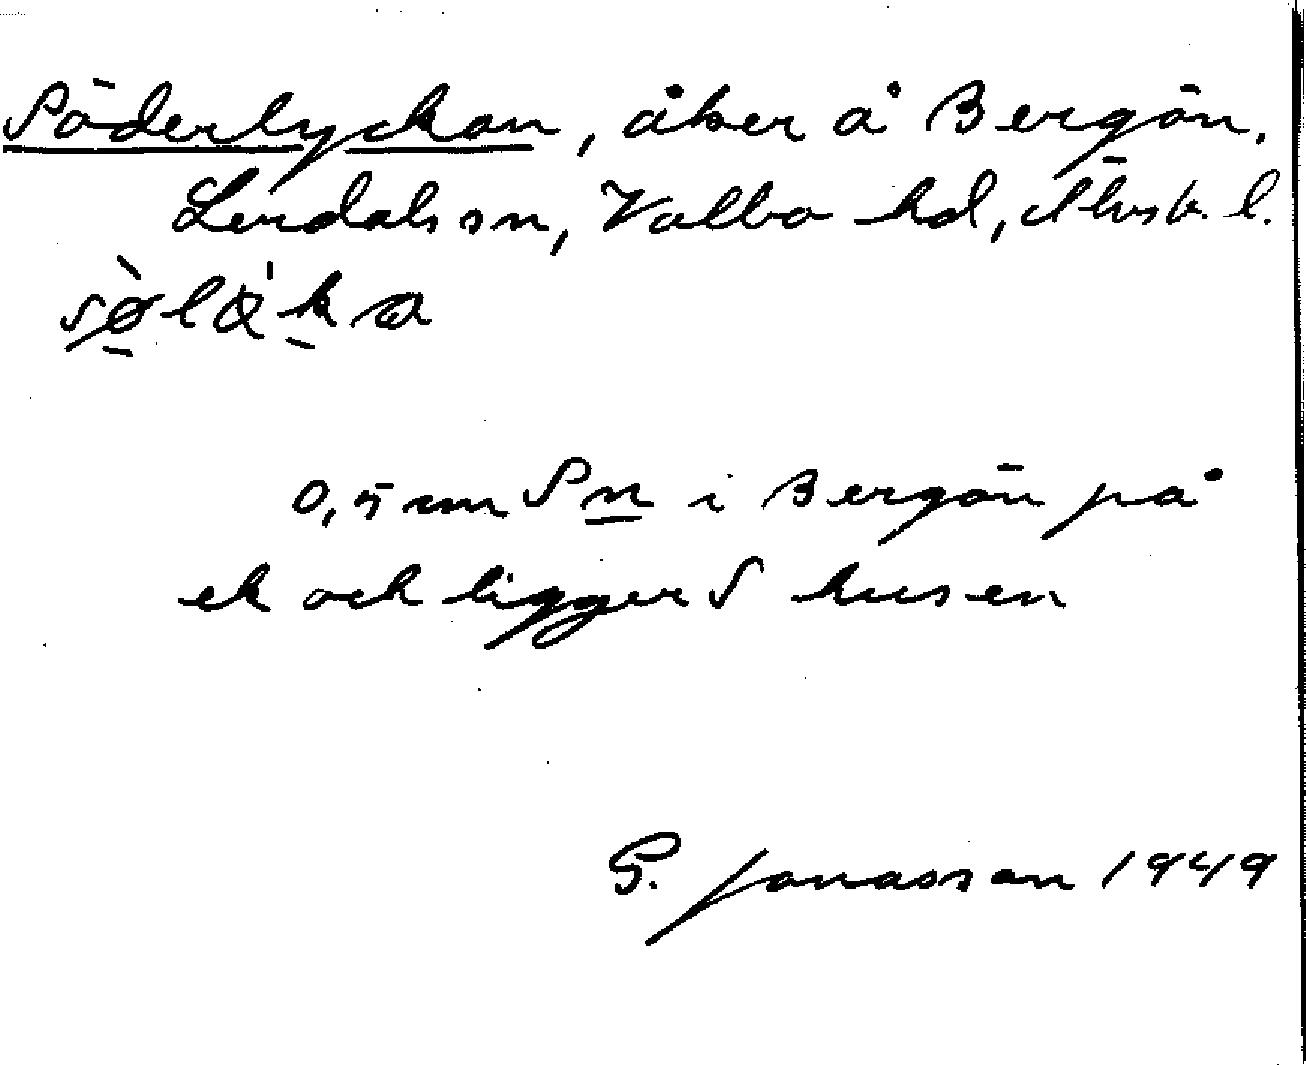 Söderlyckan, åker å Bergön,
Lerdals sn, Valbo hd, Älvsb. l.
0,5 mm S n i Bergön på
ek och ligger S husen
G. Jonasson 1949